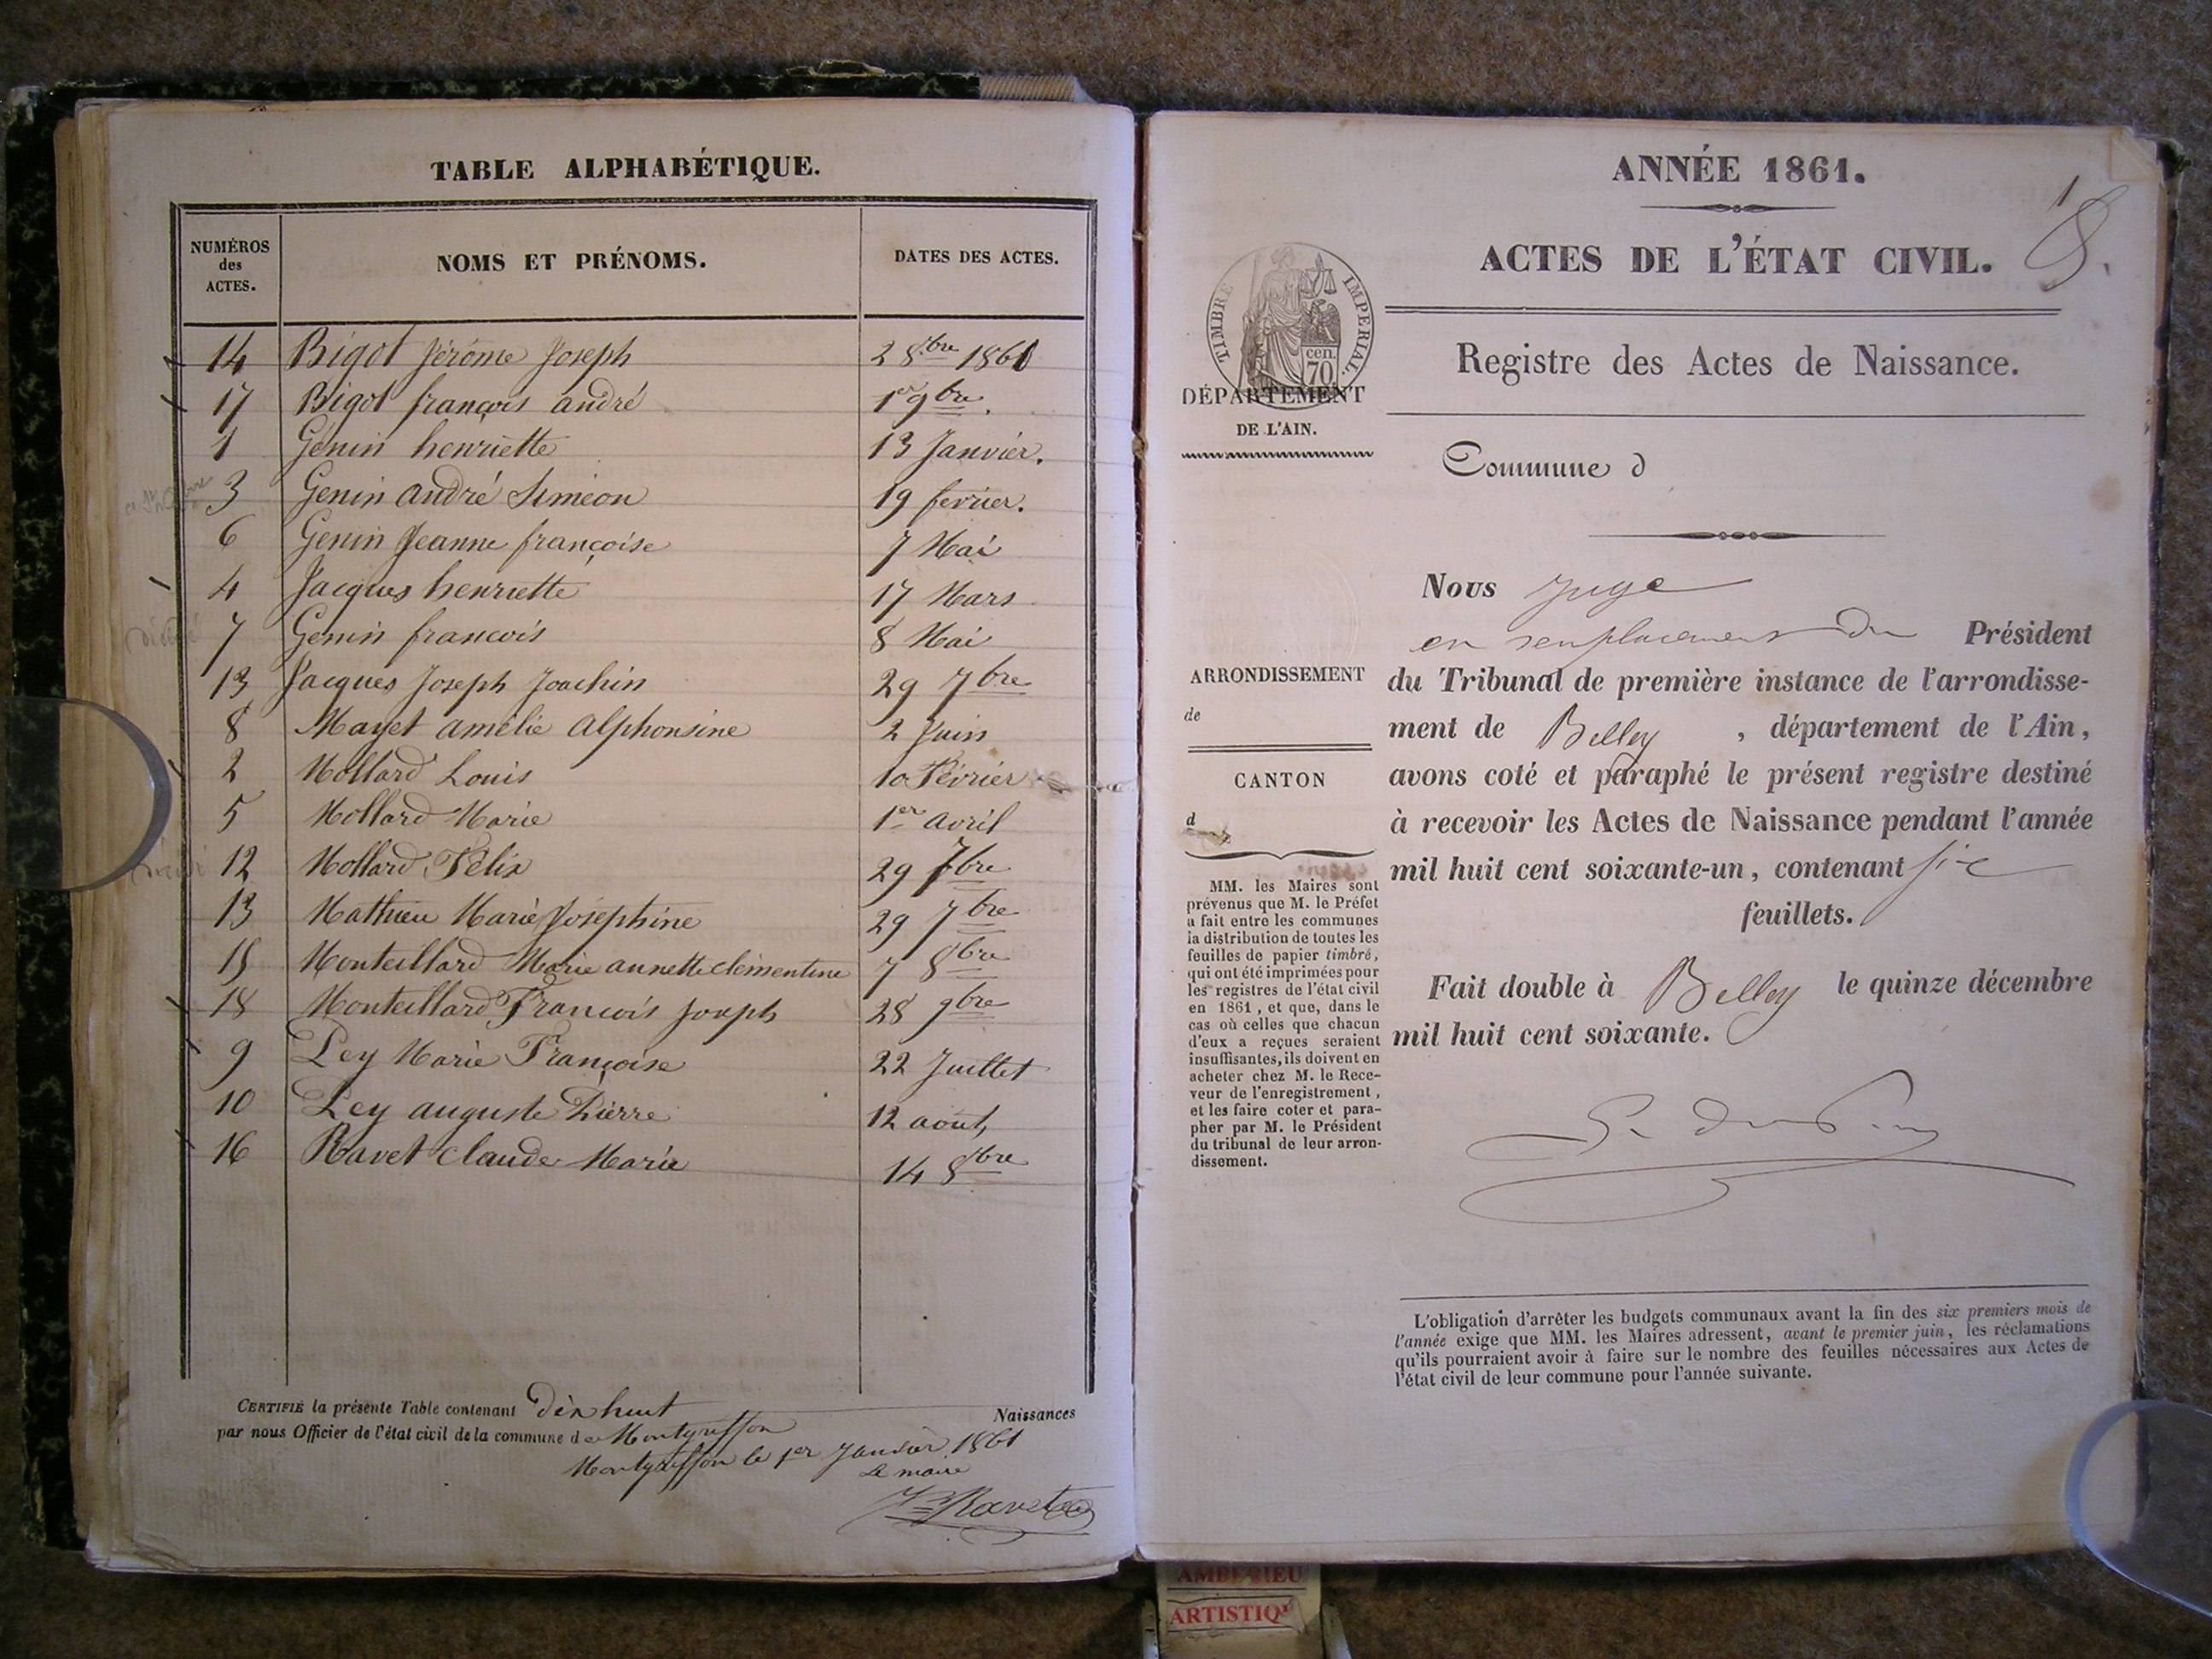 TABLE ALPHABÉTIQUE.
NUMÉROS
des
ACTES.
NOMS ET PRÉNOMS.
DATES DES ACTES.
14 Bigot Jérôme Joseph 2 8bre 1860
17 Bigot françois andré 1er 9bre.
1 Génin henriette 13 Janvier.
3 Genin andré Siméon 19 fevrier.
6 Genin Jeanne françoise 7 Mai
4 Jacques henriette 17 Mars
7 Genin francois 8 Mai
13 Jacques Joseph Joachin 29 7bre
8 Mayet amélie Alphonsine 2 Juin
2 Mollard Louis 10 Février
5 Mollard Marie 1er avril
12 Mollard Félix 29 7bre
13 Mathieu Marie Joséphine 29 7bre
15 Monteillard Marie annette clémentine 7 8bre
18 Monteillard François Joseph 28 9bre
9 Ley Marie Françoise 22 Juillet
10 Ley auguste Pierre 12 aout,
16 Ravet Claude Marie 14 8bre
CERTIFIÉ la présente Table contenant dix huit Naissances
par nous Officier de l'état civil de la commune de Montgriffon
Montgriffon le 1er Janvier 1861
Le maire
Ravet
ANNÉE 1861.
1
ACTES DE L'ÉTAT CIVIL.
TIMBRE IMPERIAL.
cen.
70
Registre des Actes de Naissance.
DÉPARTEMENT
DE L'AIN.
Commune d
Nous Juge
en remplacement du Président
ARRONDISSEMENT
de
CANTON
d
du Tribunal de première instance de l'arrondisse-
ment de Belley , département de l'Ain,
avons coté et paraphé le présent registre destiné
à recevoir les Actes de Naissance pendant l'année
mil huit cent soixante-un, contenant six
feuillets.
MM. les Maires sont
prévenus que M. le Préfet
a fait entre les communes
la distribution de toutes les
feuilles de papier timbré,
qui ont été imprimées pour
les registres de l'état civil
en 1861, et que, dans le
cas où celles que chacun
d'eux a reçues seraient
insuffisantes, ils doivent en
acheter chez M. le Rece-
veur de l'enregistrement,
et les faire coter et para-
pher par M. le Président
du tribunal de leur arron-
dissement.
Fait double à Belley le quinze décembre
mil huit cent soixante.
L'obligation d'arrêter les budgets communaux avant la fin des six premiers mois de
l'année exige que MM. les Maires adressent, avant le premier juin, les réclamations
qu'ils pourraient avoir à faire sur le nombre des feuilles nécessaires aux Actes de
l'état civil de leur commune pour l'année suivante.
AMBERIEU
ARTISTIQ